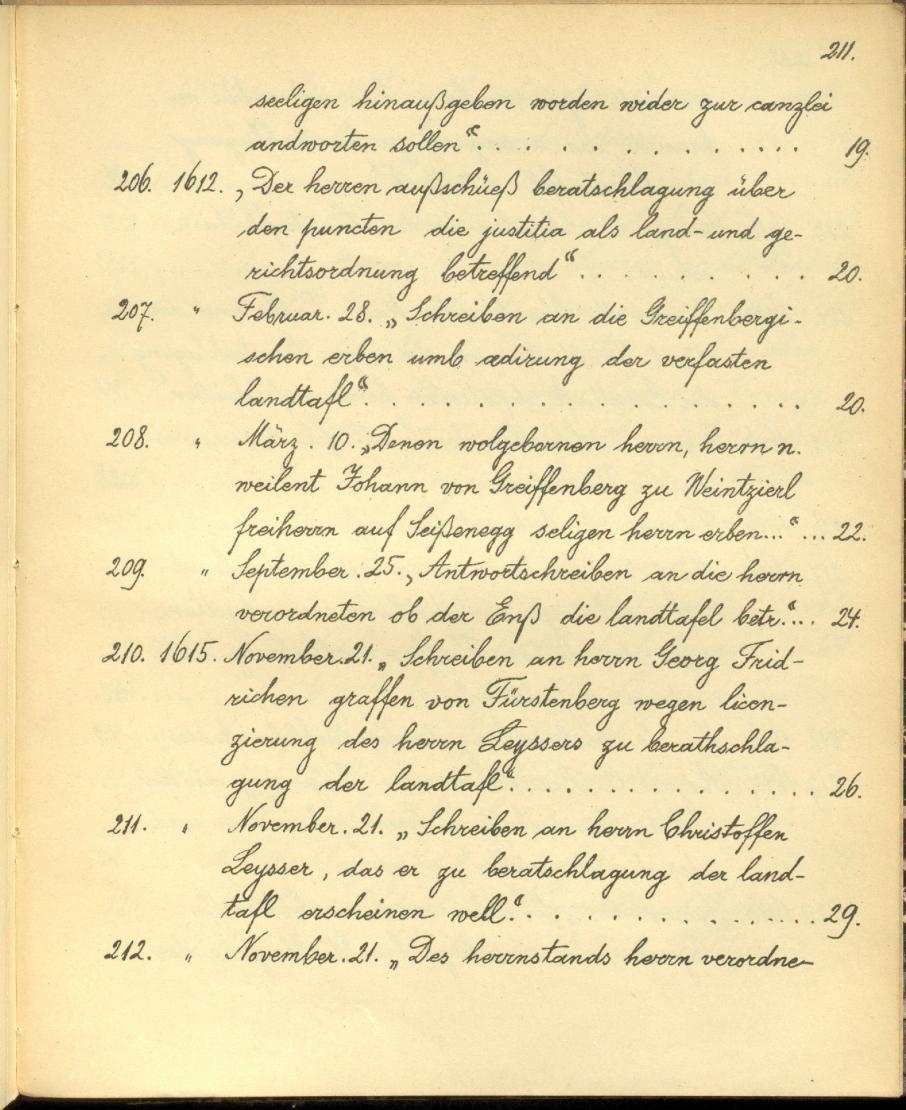 211.
seeligen hinaußgeben worden wider zur canzlei
andworten sollen“. . . . . . . . . . . . . . 19.
206. 1612. „Der herren außschüeß beratschlagung über
den puncten die justitia als land- und ge-
richtsordnung betreffend“. . . . . . . . . 20.
207. " Februar. 28. „Schreiben an die Greiffenbergi-
schen erben umb ædirung der verfasten
landtafl“. . . . . . . . . . . . . . . . 20.
208. " März. 10. „Denen wolgebornen herrn, herrn n.
weilent Johann von Greiffenberg zu Weintzierl
freiherrn auf Seißenegg seligen herrn erben...“... 22.
209. " September. 25. „Antwortschreiben an die herrn
verordneten ob der Enß die landtafel betr.“... 24.
210. 1615. November. 21. „Schreiben an herrn Georg Frid-
richen graffen von Fürstenberg wegen licen-
zierung des herrn Leyssers zu berathschla-
gung der landtafl“. . . . . . . . . . . . . . . 26.
211. " November. 21. „Schreiben an herrn Christoffen
Leysser, das er zu beratschlagung der land-
tafl erscheinen well“. . . . . . . . . . . . . . 29.
212. " November. 21. „Des herrnstands herrn verordne-